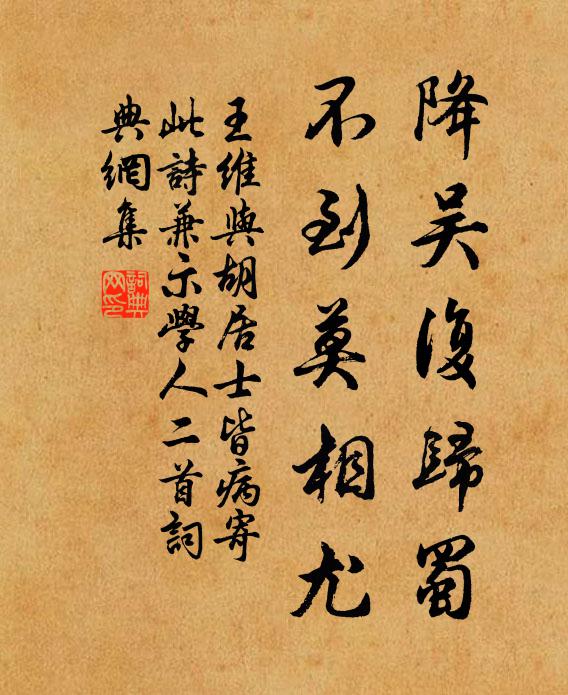 降吳復歸蜀
不到莫相尤
王維與胡居士皆病寄
此詩兼示學人二首詞
典網集
詞典
网印